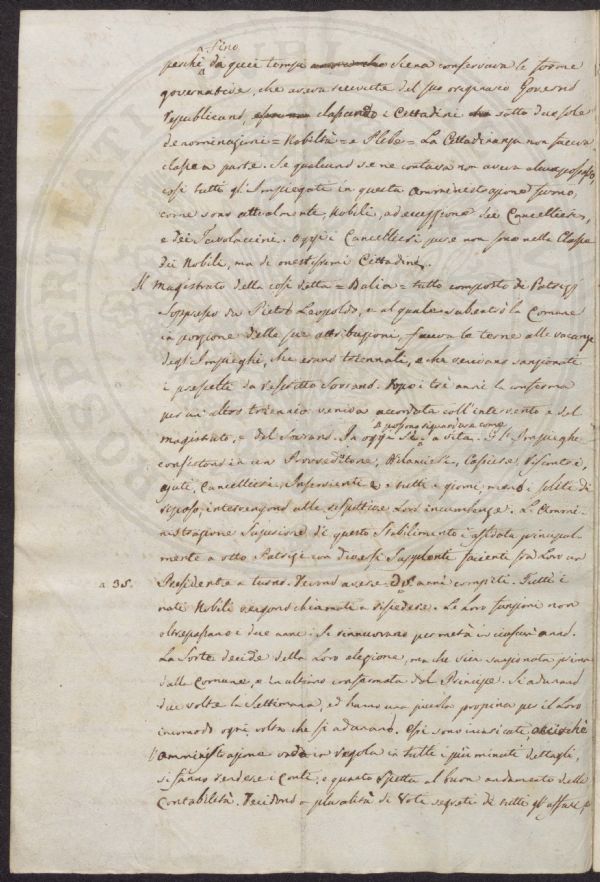 a Fino
perchè da quei tempi Siena conservava le forme
governative, che aveva ricevute del suo originario Governo
republicano, classando i Cittadini sotto due sole
denominazioni = Nobiltà = e Plebe = La Cittadinanza non faceva
classe a parte. Se qualcuno se ne contava non aveva
così tutti gl'Impiegati in questa amministrazione furono,
come sono attualmente, Nobili, ad eccezione dei Cancellieri,
e dei Tavolaccini. Oggi i Cancellieri pure non sono nella Classe
dei Nobili, ma di onestissimi Cittadini.
Il Magistrato della così detta = Balia = tutto composto di Patrizj
Soppresso da Pietro Leopoldo, e al quale subentrò la Comune
in porzione delle sue attribuzioni, faceva le terne alle vacanze
degl'Impieghi, che erano triennali, e che venivano sanzionati
i prescelti da rescritto Sovrano. Dopo i tre anni la conferma
per un altro triennio veniva accordata coll'intervento e del
magistrato, e del Sovrano. In oggi si possono riguardare come a vita. Gl'Impieghi
consistono in un Provveditore, Bilanciere, Cassiere, Riscontri,
ajuti, Cancellieri, Inservienti e tutti i giorni, meno i soliti di
riposo, intervengono alle rispettive loro incumbenze. L'Ammi-
nistrazione Superiore di questo Stabilimento è affidata principal-
mente a otto Patrizi con diversi Supplenti facienti fra Loro un
a 35. Presidente a turno. Devono avere anni compiti. Tutti i
nati Nobili vengono chiamati a risiedere. Le loro funzioni non
oltrepassano i due anni. Si rinnuovano per metà in ciascun anno.
La Sorte decide della Loro elezione, ma che sia sanzionata prima
dalla Comune, e in ultimo confermata dal Principe. Si adunano
due volte la Settimana, ed hanno una piccola propina per il Loro
incomodo ogni volta che si adunano. Essi sono incaricati, acciochè
l'amministrazione vada in regola in tutti i più minuti dettagli,
si fanno rendere i Conti, e quanto spetta al buon andamento della
Contabilità. Decidono a pluralità di Voti segreti di tutti gl'affari